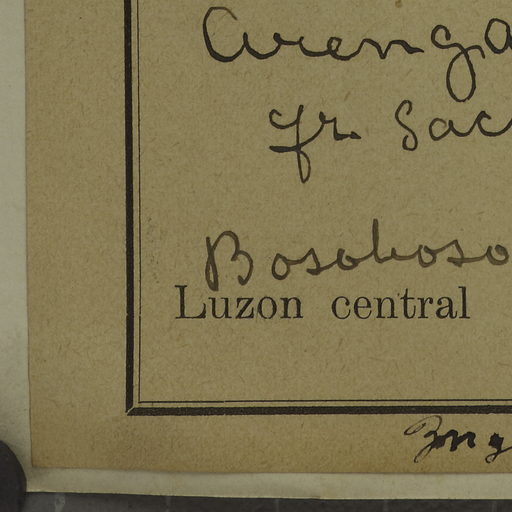 Arenga
fr. Sac
Bosoboso
Luzon central